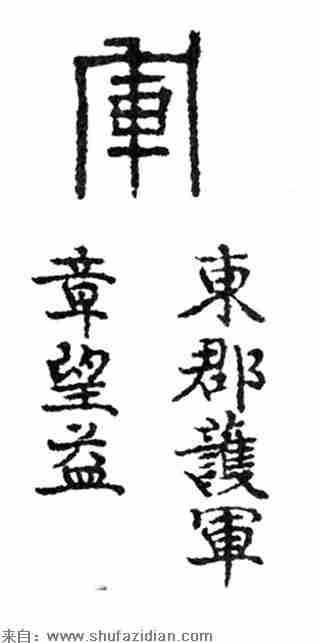 軍
東郡護軍
章望益
来自：www.shufazidian.com